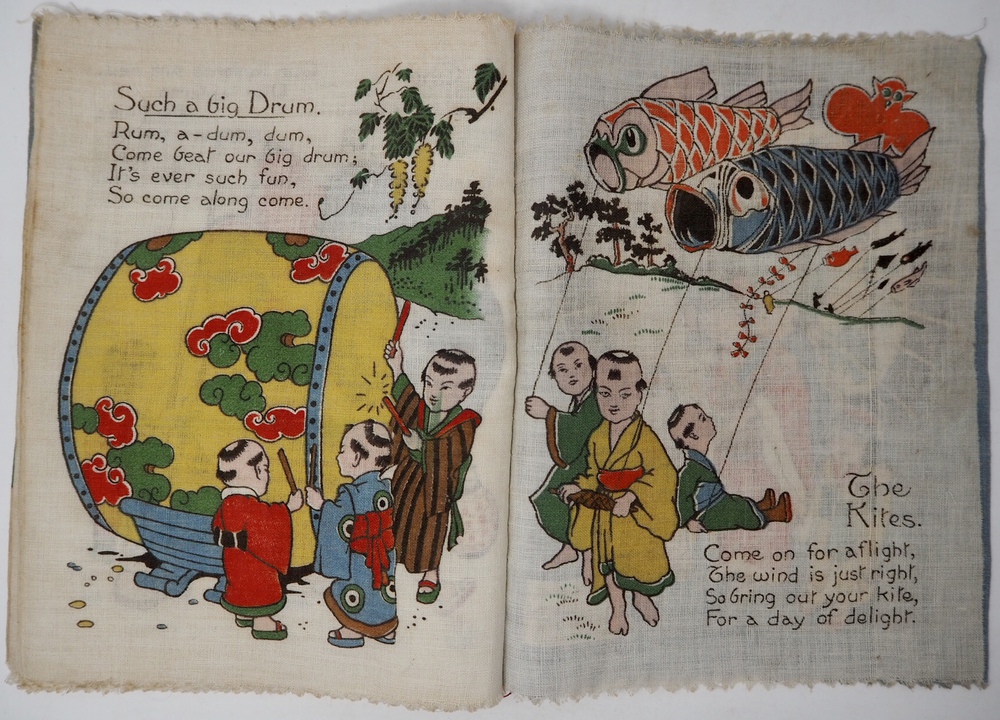 Such a big Drum.
Rum, a-dum, dum,
Come beat our big drum;
It's ever such fun,
So come along come.
The
Kites.
Come on for a flight,
The wind is just right,
So bring out your kite,
For a day of delight.